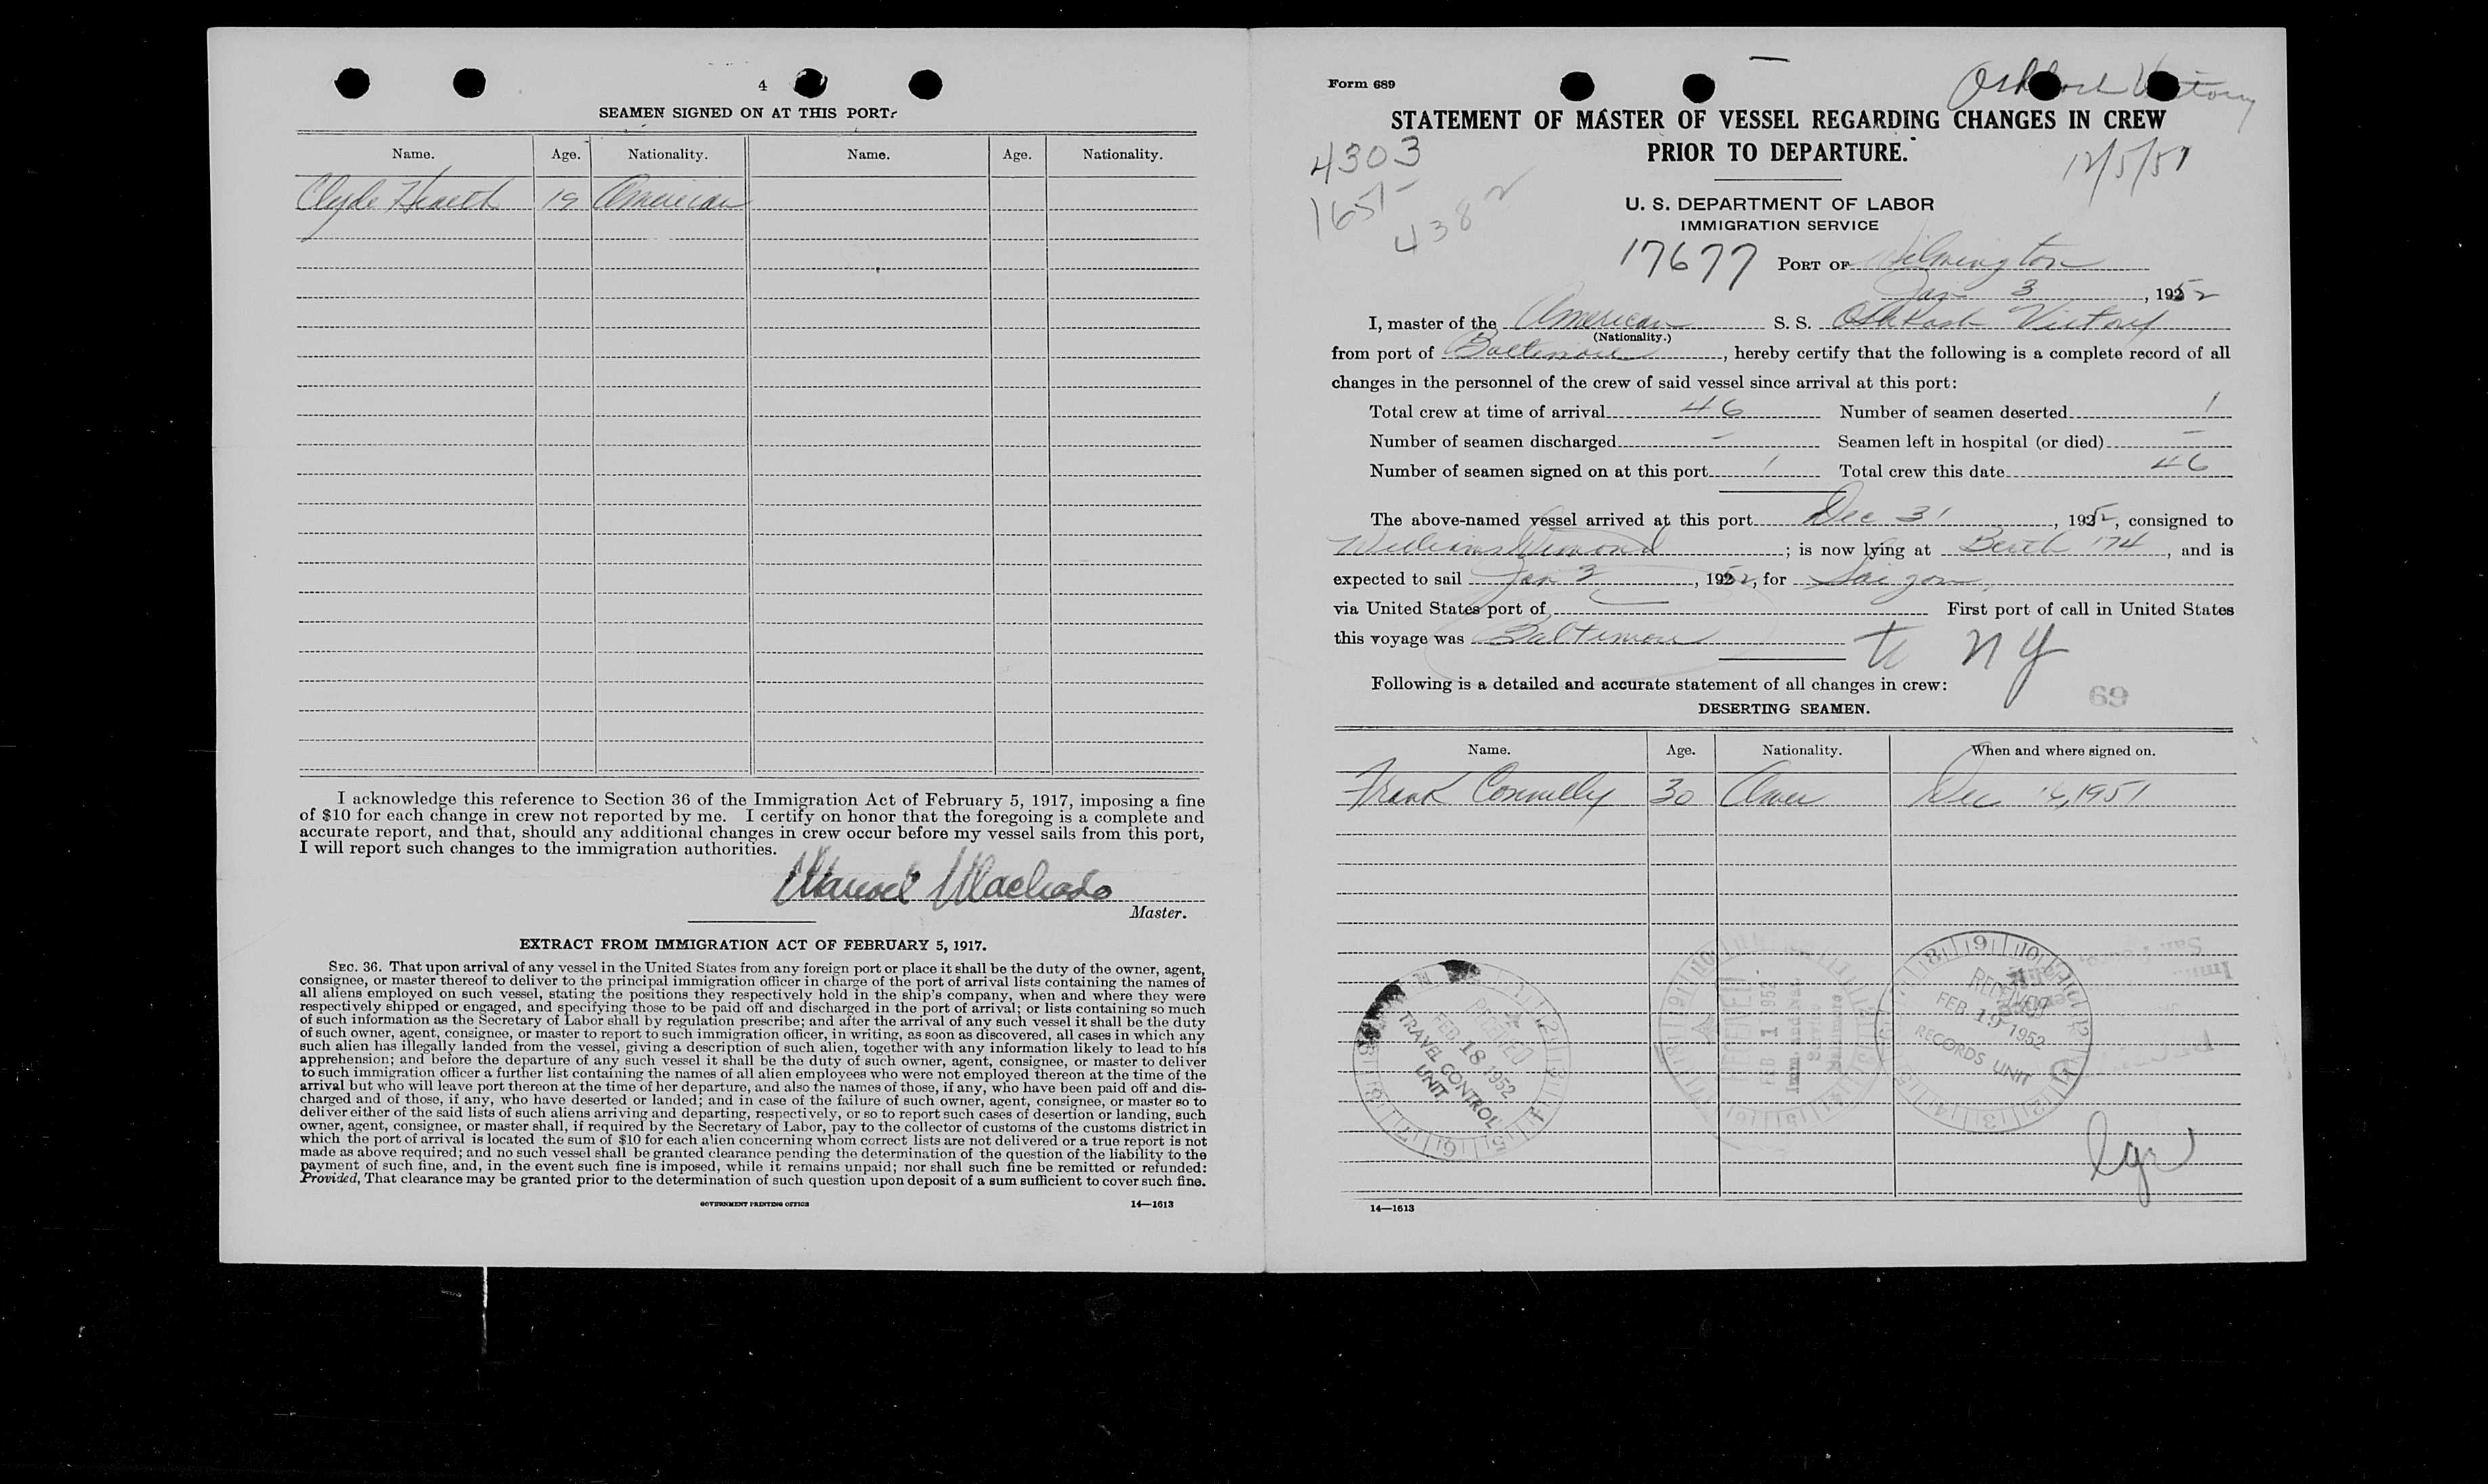 4
SEAMEN SIGNED ON AT THIS PORT:
Name. Age. Nationality. Name. Age. Nationality.
Clyde 19 American
I acknowledge this reference to Section 36 of the Immigration Act of February 5, 1917, imposing a fine
of $10 for each change in crew not reported by me. I certify on honor that the foregoing is a complete and
accurate report, and that, should any additional changes in crew occur before my vessel sails from this port,
I will report such changes to the immigration authorities.
Manuel Machado
Master.
EXTRACT FROM IMMIGRATION ACT OF FEBRUARY 5, 1917.
SEC. 36. That upon arrival of any vessel in the United States from any foreign port or place it shall be the duty of the owner, agent,
consignee, or master thereof to deliver to the principal immigration officer in charge of the port of arrival lists containing the names of
all aliens employed on such vessel, stating the positions they respectively hold in the ship's company, when and where they were
respectively shipped or engaged, and specifying those to be paid off and discharged in the port of arrival; or lists containing so much
of such information as the Secretary of Labor shall by regulation prescribe; and after the arrival of any such vessel it shall be the duty
of such owner, agent, consignee, or master to report to such immigration officer, in writing, as soon as discovered, all cases in which any
such alien has illegally landed from the vessel, giving a description of such alien, together with any information likely to lead to his
apprehension; and before the departure of any such vessel it shall be the duty of such owner, agent, consignee, or master to deliver
to such immigration officer a further list containing the names of all alien employees who were not employed thereon at the time of the
arrival but who will leave port thereon at the time of her departure, and also the names of those, if any, who have been paid off and dis-
charged and of those, if any, who have deserted or landed; and in case of the failure of such owner, agent, consignee, or master so to
deliver either of the said lists of such aliens arriving and departing, respectively, or so to report such cases of desertion or landing, such
owner, agent, consignee, or master shall, if required by the Secretary of Labor, pay to the collector of customs of the customs district in
which the port of arrival is located the sum of $10 for each alien concerning whom correct lists are not delivered or a true report is not
made as above required; and no such vessel shall be granted clearance pending the determination of the question of the liability to the
payment of such fine, and, in the event such fine is imposed, while it remains unpaid; nor shall such fine be remitted or refunded:
Provided, That clearance may be granted prior to the determination of such question upon deposit of a sum sufficient to cover such fine.
GOVERNMENT PRINTING OFFICE 14—1613
Form 689
Oshkosh Victory
STATEMENT OF MASTER OF VESSEL REGARDING CHANGES IN CREW
PRIOR TO DEPARTURE.
4303
12/5/51
1651
4382
U. S. DEPARTMENT OF LABOR
IMMIGRATION SERVICE
17677 PORT OF Wilmington
Jan 3, 1952
I, master of the American S. S. Oshkosh Victory
(Nationality.)
from port of Baltimore, hereby certify that the following is a complete record of all
changes in the personnel of the crew of said vessel since arrival at this port:
Total crew at time of arrival 46 Number of seamen deserted 1
Number of seamen discharged - Seamen left in hospital (or died) -
Number of seamen signed on at this port 1 Total crew this date 46
The above-named vessel arrived at this port Dec 31, 1952, consigned to
Williams Dimond; is now lying at Berth 174, and is
expected to sail Jan 3, 1952, for Saigon
via United States port of First port of call in United States
this voyage was Baltimore
to NY
Following is a detailed and accurate statement of all changes in crew:
69
DESERTING SEAMEN.
Name. Age. Nationality. When and where signed on.
Frank Connelly 30 Amer Dec 1951
RECEIVED
FEB 18 1952
TRAVEL CONTROL
UNIT
RECEIVED
FEB 1 1952
Baltimore
RECEIVED
FEB 19 1952
RECORDS UNIT
14—1613